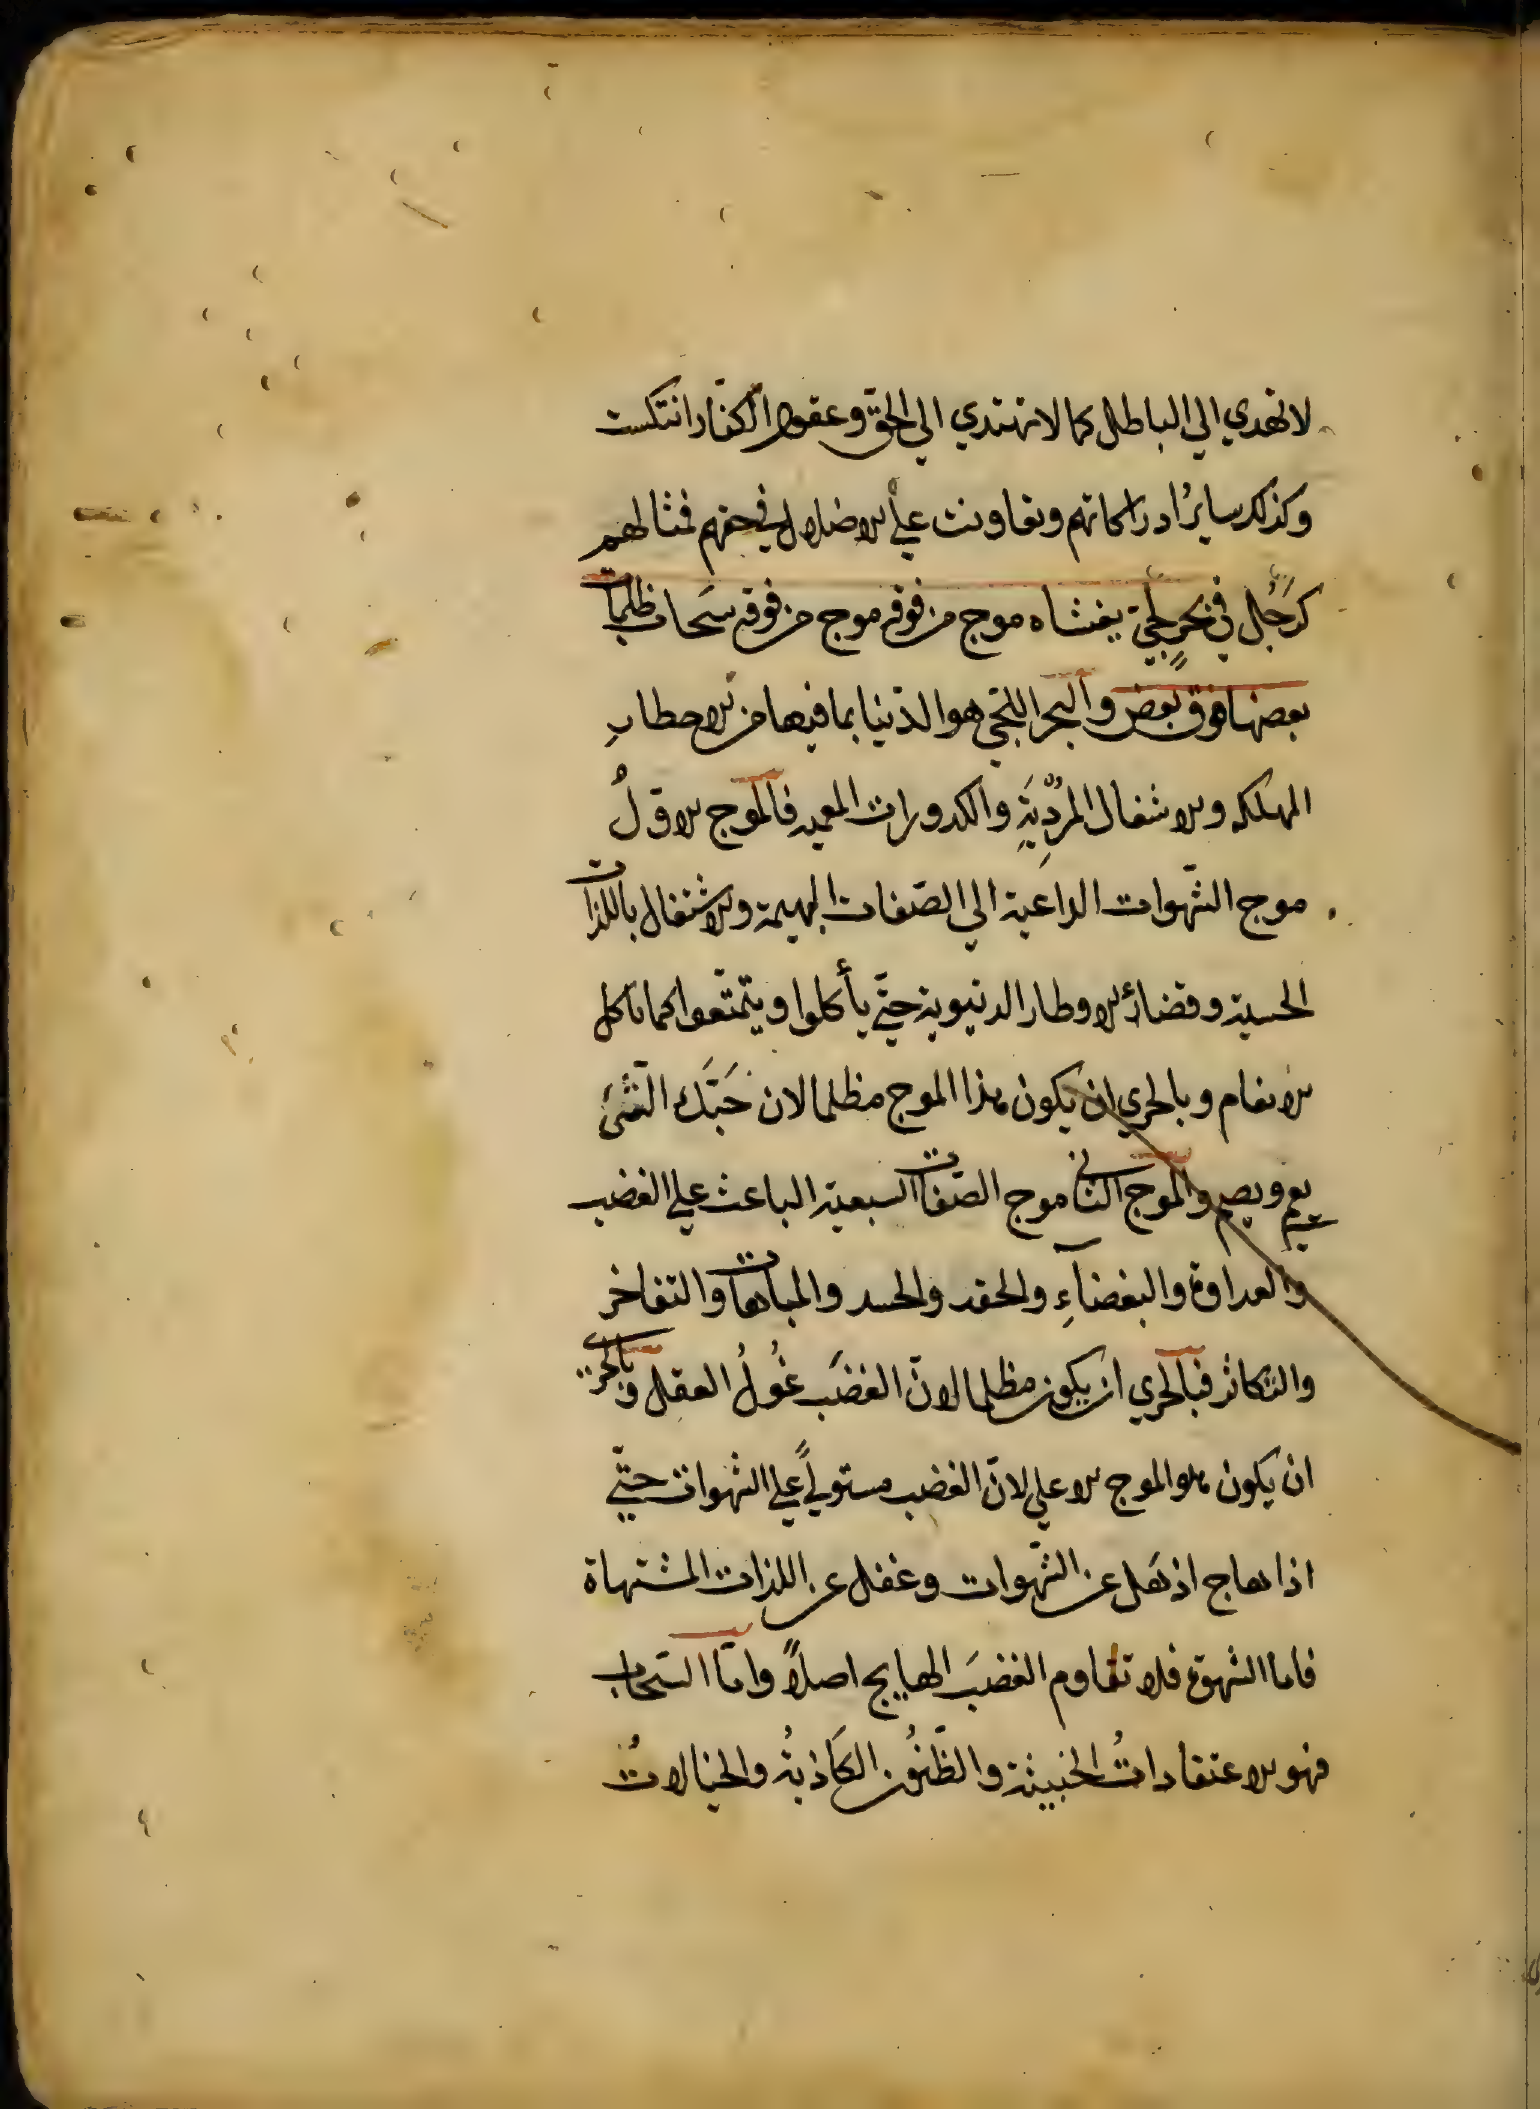 لا تهدي الي الباطل كما لا تهتدي الي الحقّ وعقول الكفّار انتكست
وكذلك ساير ادراكاتهم وتعاونت علي الاضلال في حقهم فمثالهم
كرَجُل في بحرٍ لجّيّ يغشاه موج من فوقه موج من فوقه سَحاب ظلمات
بعضها فوق بعض والبحر اللجّي هو الدّنيا بما فيها من الاخطارِ
المهلكه والاشغال المُرْدِيَةِ والكدورات المعميه فالموج الاوّلُ
موج الشّهوات الداعية الي الصّفات البهيمة والاشتغال باللذات
الحسية وقضاء الاوطار الدنيوية حتّي يأكلوا ويتمتّعوا كما تاكل
الانعام وبالحري ان يكون هذا الموج مظلما لان حَبَّك الشّئ
يعمي ويصم والموج الثاني موج الصّفات السبعية الباعث علي الغضب
والعداوة والبغضآءِ والحقد والحسد والمباهات والتفاخر
والتكاثر فبالحري ان يكون مظلما لانّ الغضَب غُولُ العقل وبالحري
ان يكون هو الموج الاعلي لانّ الغضب مستولٍ علي الشهوات حتّي
اذا هاج اذهَل عن الشّهوات وغفل عن اللذات المشتهاة
فاما الشهوة فلا تقاوم الغضبَ الهايج اصلاً وامّا السّحاب
فهو الاعتقاداتُ الخبيثة والظّنُون الكَاذبةُ والخيالاتُ